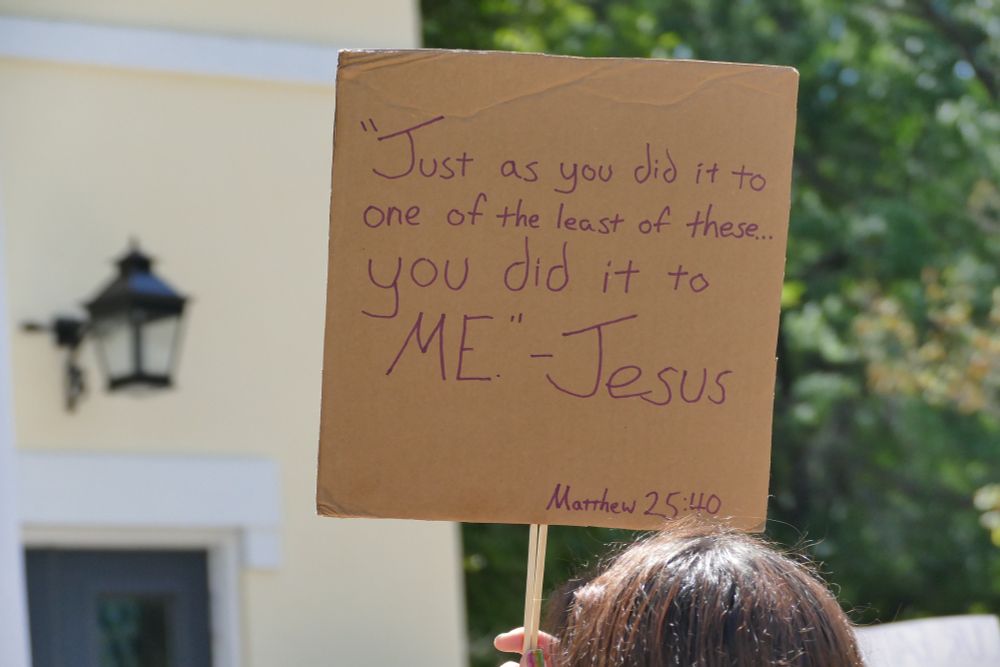 "Just as you did it to
one of the least of these...
you did it to
ME." - Jesus
Matthew 25:40